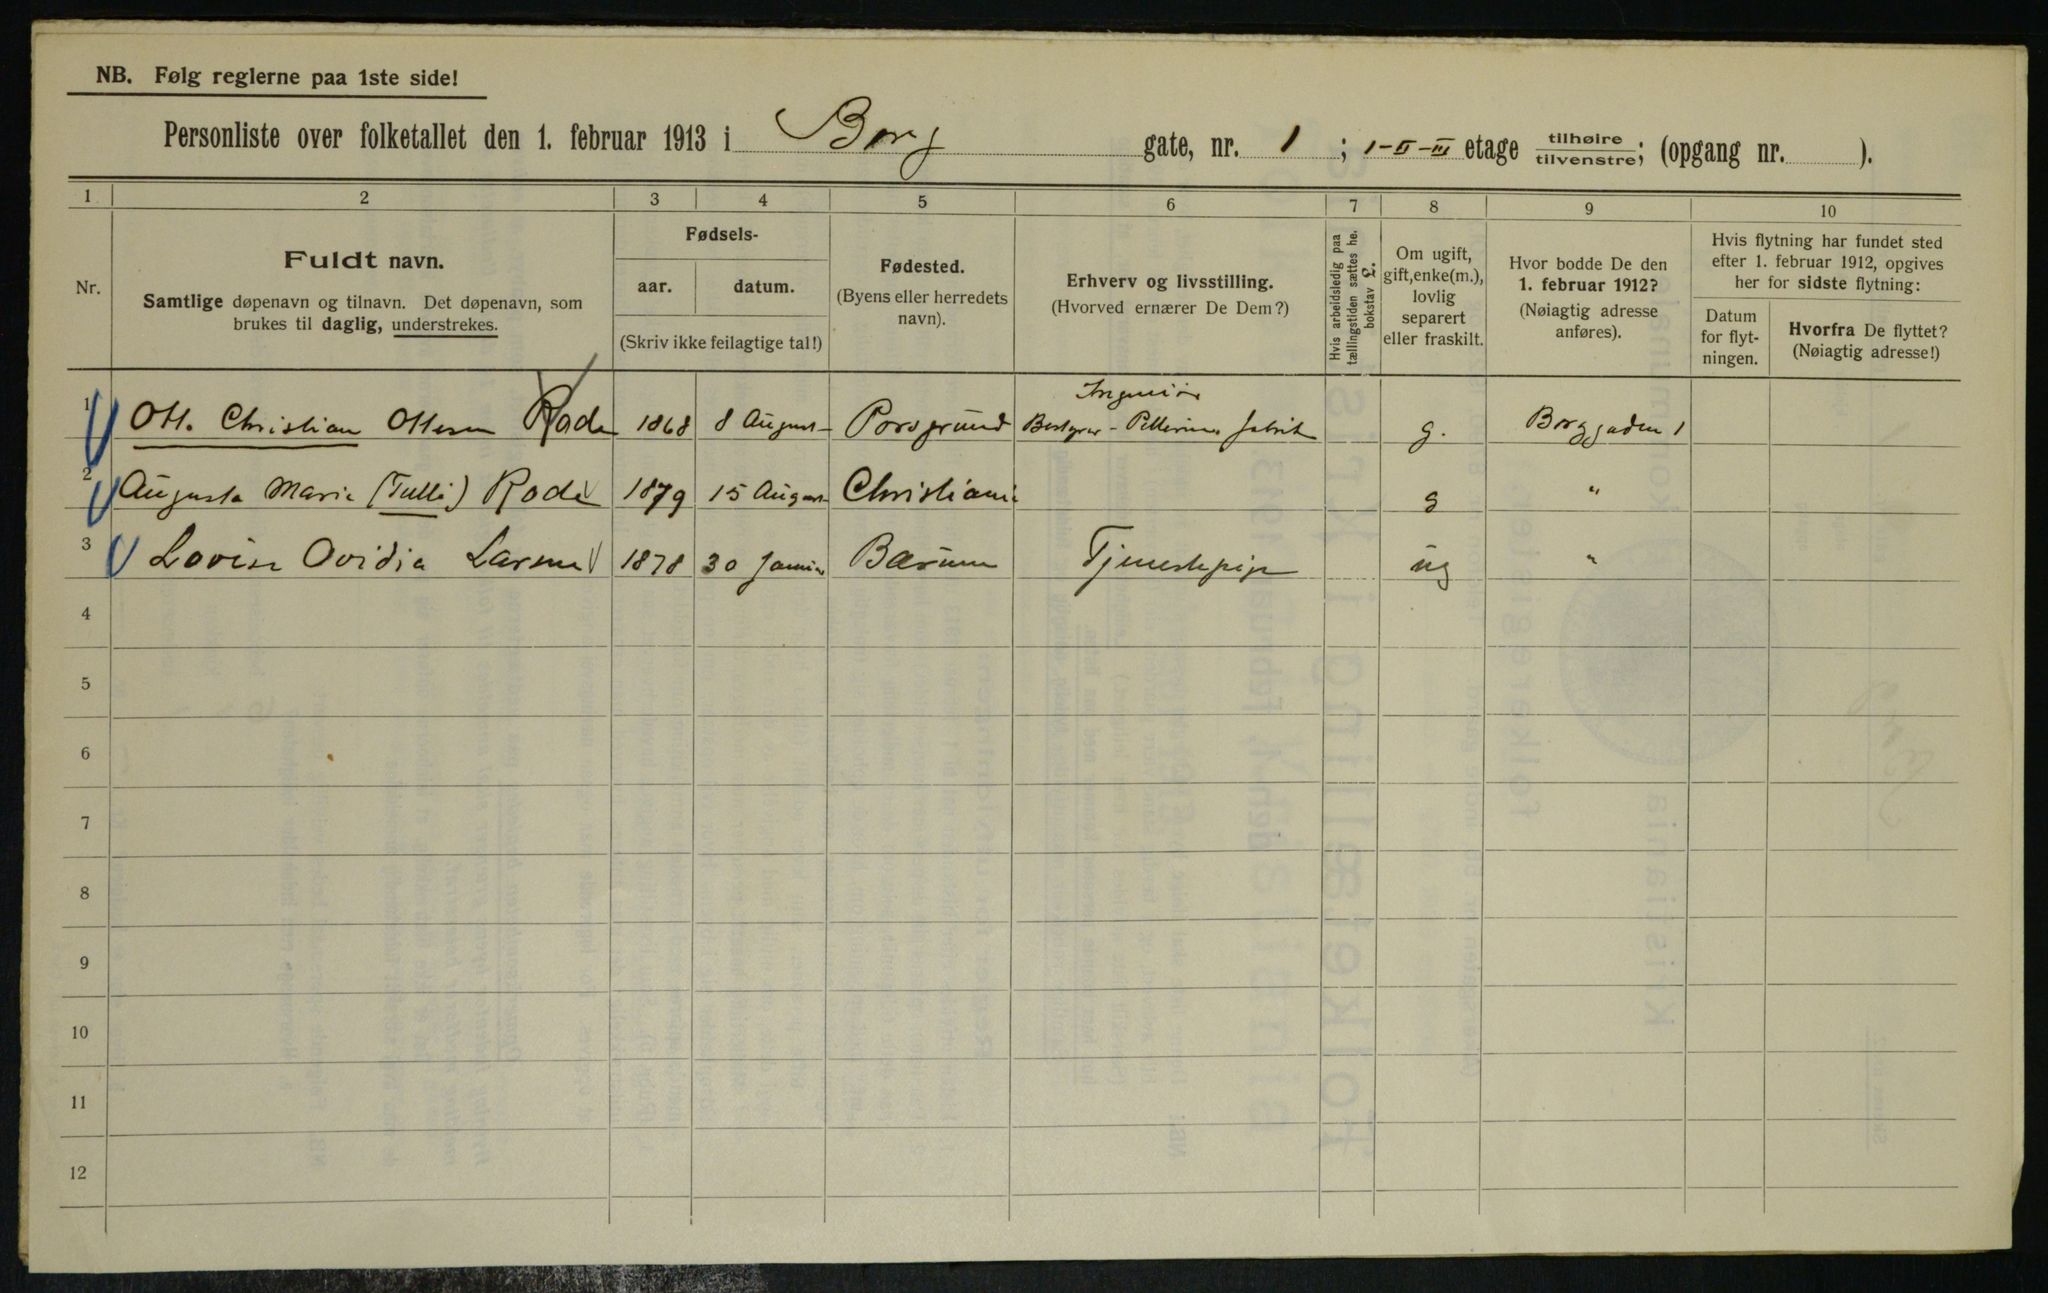 NB. Følg reglerne paa 1ste side!
Personliste over folketallet den 1. februar 1913 i Borg gate, nr. 1 ; I-II-III etage tilhøire tilvenstre; (opgang nr. ).
1 2 3 4 5 6 7 8 9 10
Nr.
Fuldt navn.
Samtlige døpenavn og tilnavn. Det døpenavn, som
brukes til daglig, understrekes.
Fødsels-
aar. datum.
(Skriv ikke feilagtige tal!)
Fødested.
(Byens eller herredets
navn).
Erhverv og livsstilling.
(Hvorved ernærer De Dem?)
Hvis arbeidsledig paa
tællingstiden sættes her
bokstav L.
Om ugift,
gift, enke(m.),
lovlig
separert
eller fraskilt.
Hvor bodde De den
1. februar 1912?
(Nøiagtig adresse
anføres).
Hvis flytning har fundet sted
efter 1. februar 1912, opgives
her for sidste flytning:
Datum
for flyt-
ningen.
Hvorfra De flyttet?
(Nøiagtig adresse!)
Ingeniør
1 Otto Christian Ottesen Rode 1868 8 August Porsgrund Bestyrer - Pellerins fabrik g. Borggaden 1
2 Augusta Marie (Tulli) Rode 1879 15 August Christiania g "
3 Lovise Ovidia Larsen 1878 30 Bærum Tjenestepige ug "
4
5
6
7
8
9
10
11
12